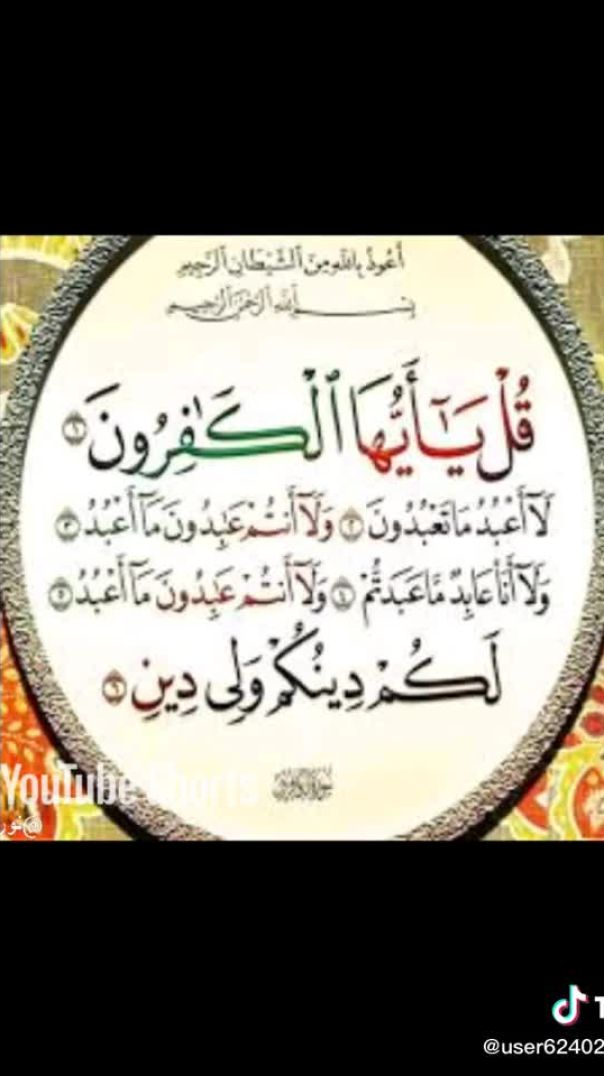 أعوذ بالله من الشيطان الرجيم
بسم الله الرحمن الرحيم
قُلْ يَـٰٓأَيُّهَا ٱلْكَـٰفِرُونَ ١
لَآ أَعْبُدُ مَا تَعْبُدُونَ ٢ وَلَآ أَنتُمْ عَـٰبِدُونَ مَآ أَعْبُدُ ٣
وَلَآ أَنَا۠ عَابِدٌ مَّا عَبَدتُّمْ ٤ وَلَآ أَنتُمْ عَـٰبِدُونَ مَآ أَعْبُدُ ٥
لَكُمْ دِينُكُمْ وَلِىَ دِينِ ٦
YouTube Shorts
@نور
T
@user62402